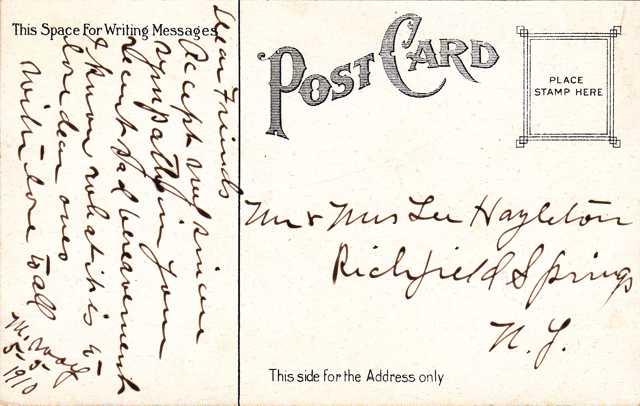 This Space For Writing Messages
POST CARD
PLACE
STAMP HERE
Dear Friends
Accept my sincere
sympathy in your
recent sad bereavement
I know what it is to
lose dear ones
with love to all
M.
5-5-
1910
Mr & Mrs Lee Hazleton
Richfield Springs
N. Y.
This side for the Address only